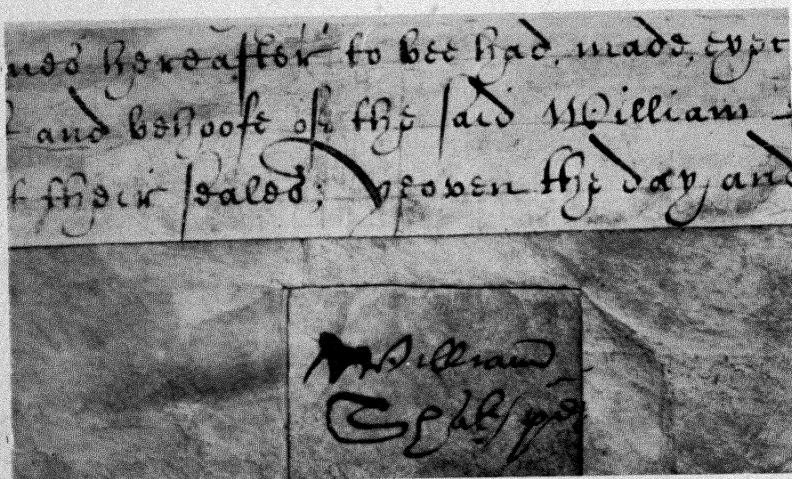 hereafter to bee had, made,
and behoofe of the said William
their seales; yeoven the day, and
William
Shakspẽ